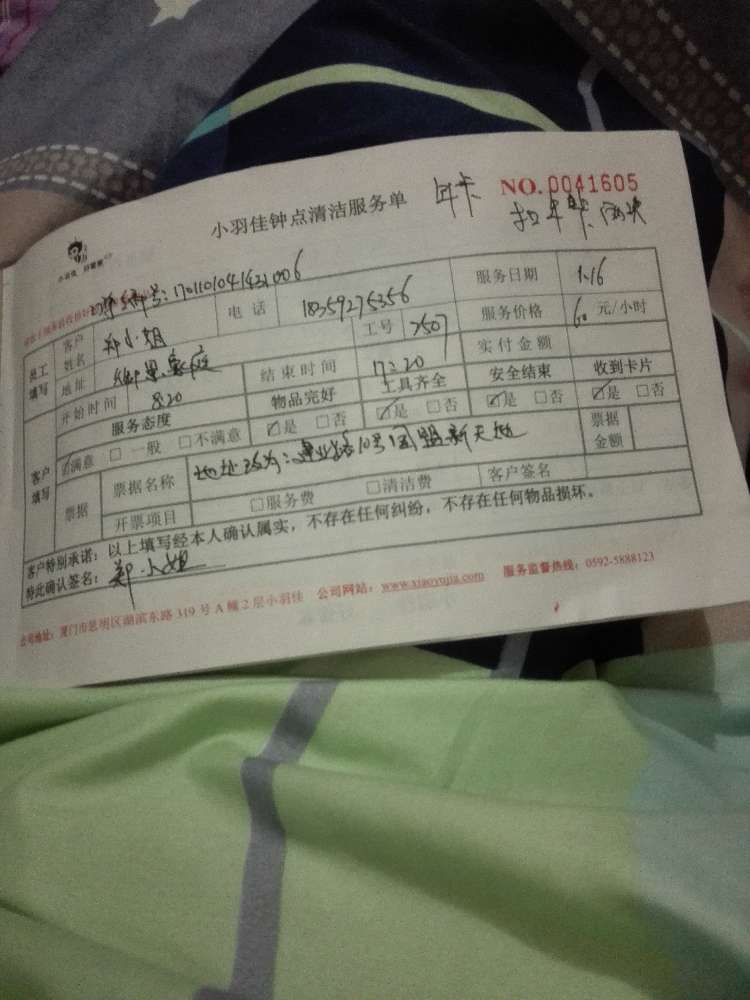 小羽佳钟点清洁服务单 年卡 NO.0041605
扣年卡 两次
小羽佳 好管家
编号:170110104143 006
员工填写 客户姓名 郑小姐 电话 18359275356 服务日期 1.16
地址 家庭 工号 2507 服务价格 60 元/小时
开始时间 8:20 结束时间 17:20 实付金额
服务态度 物品完好 工具齐全 安全结束 收到卡片
客户填写 ☑满意 □一般 □不满意 ☑是 □否 ☑是 □否 ☑是 □否 ☑是 □否
票据 票据名称 地址改为:建业路10号国盟新天地 票据金额
开票项目 □服务费 □清洁费 客户签名
客户特别承诺:以上填写经本人确认属实,不存在任何纠纷,不存在任何物品损坏。
特此确认签名: 郑小姐
公司地址:厦门市思明区湖滨东路319号A幢2层小羽佳 公司网站:www.xiaoyujia.com 服务监督热线:0592-5888123